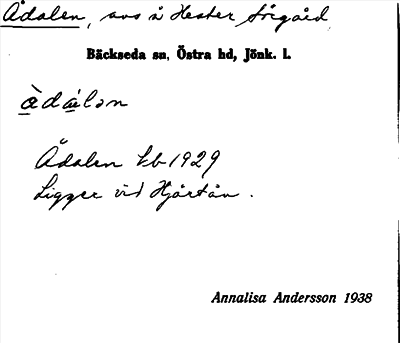 Ådalen, avs å Hester Sörgård
Bäckseda sn, Östra hd, Jönk. l.
àdálən
Ådalen kb 1929
Ligger vid Hjärtån.
Annalisa Andersson 1938